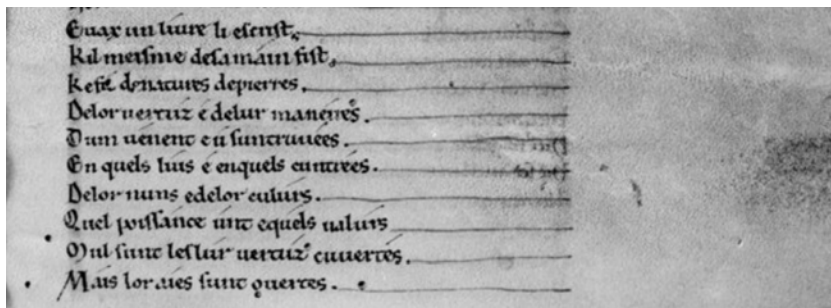 Evax un livre li escrist.
Kil meisme de sa main fist.
Ke fu de natures de pierres.
De lor vertuz e de lur maneires.
Dum venent e u sunt truvees.
En quels lius e en quels cuntrees.
De lor nuns e de lor culurs.
Quel poissance unt e quels valurs
Mul sunt les lur vertuz cuvertes.
Mais lor aies sunt overtes.